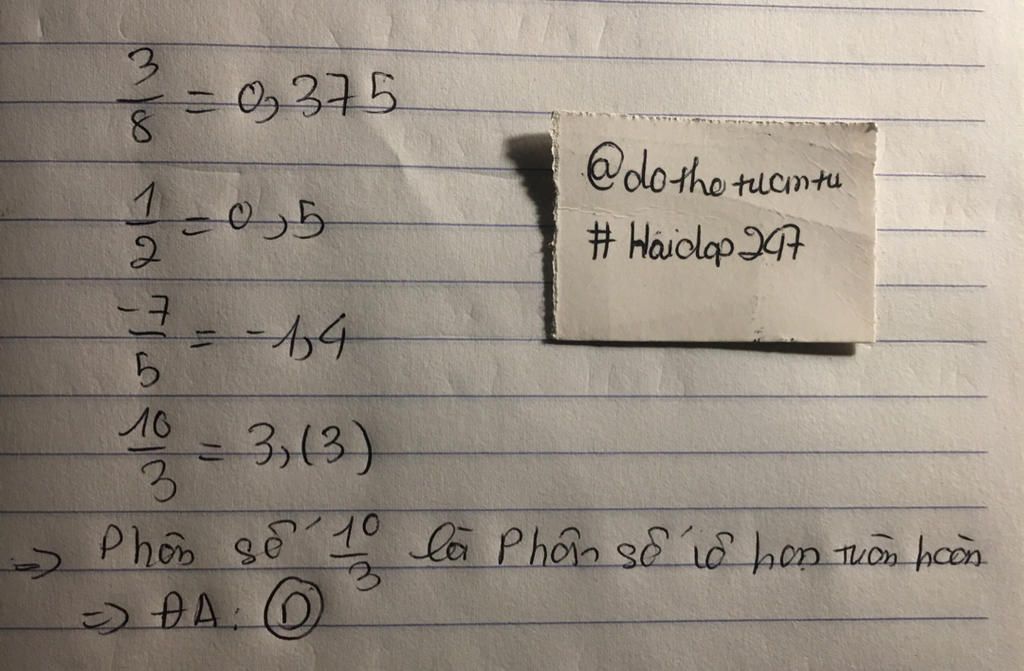 3/8 = 0,375
1/2 = 0,5
-7/5 = -1,4
10/3 = 3,(3)
@dothetuantu
#Hoidap247
=> Phân số 10/3 là Phân số vô hạn tuần hoàn
=> ĐA: D